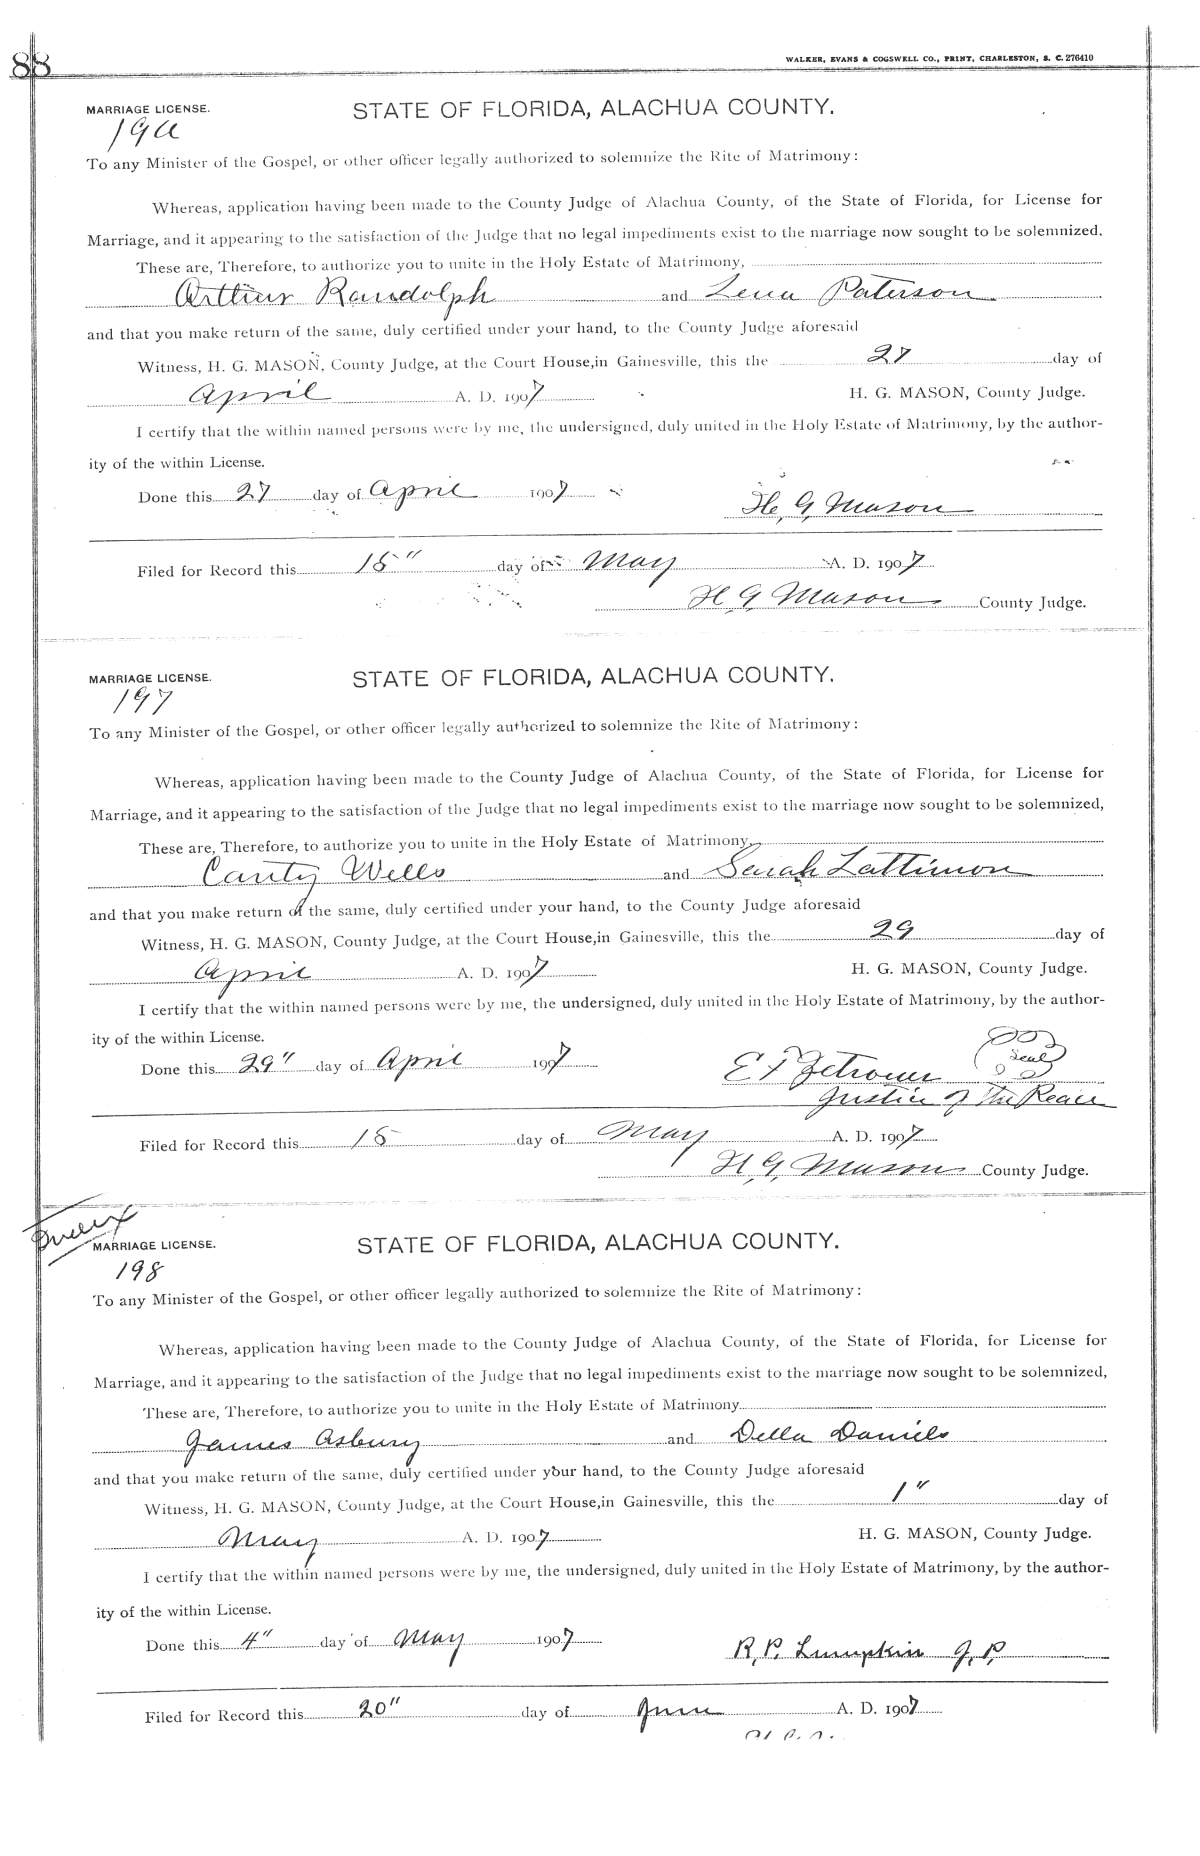 88
WALKER, EVANS & COGSWELL CO., PRINT, CHARLESTON, S. C. 276410
MARRIAGE LICENSE.
STATE OF FLORIDA, ALACHUA COUNTY.
To any Minister of the Gospel, or other officer legally authorized to solemnize the Rite of Matrimony:
Whereas, application having been made to the County Judge of Alachua County, of the State of Florida, for License for
Marriage, and it appearing to the satisfaction of the Judge that no legal impediments exist to the marriage now sought to be solemnized.
These are, Therefore, to authorize you to unite in the Holy Estate of Matrimony,
Arthur Randolph and Lena Paterson
and that you make return of the same, duly certified under your hand, to the County Judge aforesaid
Witness, H. G. MASON, County Judge, at the Court House, in Gainesville, this the 27 day of
April A. D. 1907 H. G. MASON, County Judge.
I certify that the within named persons were by me, the undersigned, duly united in the Holy Estate of Matrimony, by the author-
ity of the within License.
Done this 27 day of April 1907 H. G. Mason
Filed for Record this 15" day of May A. D. 1907
H G Mason County Judge.
MARRIAGE LICENSE.
STATE OF FLORIDA, ALACHUA COUNTY.
197
To any Minister of the Gospel, or other officer legally authorized to solemnize the Rite of Matrimony:
Whereas, application having been made to the County Judge of Alachua County, of the State of Florida, for License for
Marriage, and it appearing to the satisfaction of the Judge that no legal impediments exist to the marriage now sought to be solemnized,
These are, Therefore, to authorize you to unite in the Holy Estate of Matrimony,
Canty Wells and Sarah Lattimon
and that you make return of the same, duly certified under your hand, to the County Judge aforesaid
Witness, H. G. MASON, County Judge, at the Court House, in Gainesville, this the 29 day of
April A. D. 1907 H. G. MASON, County Judge.
I certify that the within named persons were by me, the undersigned, duly united in the Holy Estate of Matrimony, by the author-
ity of the within License.
Done this 29" day of April 1907 E F Zetrouer Seal
Justice of the Peace
Filed for Record this 15 day of May A. D. 1907
H. G. Mason County Judge.
MARRIAGE LICENSE.
STATE OF FLORIDA, ALACHUA COUNTY.
198
To any Minister of the Gospel, or other officer legally authorized to solemnize the Rite of Matrimony:
Whereas, application having been made to the County Judge of Alachua County, of the State of Florida, for License for
Marriage, and it appearing to the satisfaction of the Judge that no legal impediments exist to the marriage now sought to be solemnized,
These are, Therefore, to authorize you to unite in the Holy Estate of Matrimony
James Asbury and Della Daniels
and that you make return of the same, duly certified under your hand, to the County Judge aforesaid
Witness, H. G. MASON, County Judge, at the Court House, in Gainesville, this the 1" day of
May A. D. 1907 H. G. MASON, County Judge.
I certify that the within named persons were by me, the undersigned, duly united in the Holy Estate of Matrimony, by the author-
ity of the within License.
Done this 4" day of May 1907 R. P. Lumpkin J. P.
Filed for Record this 20" day of June A. D. 1907